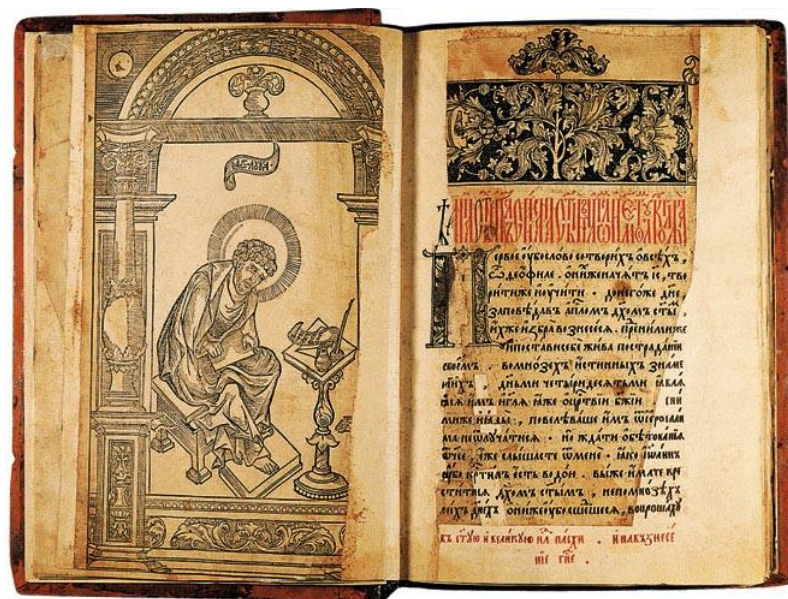 Первое ѹбо слово сотворихъ ѡ всѣхъ ,
ѽ ѳеофиле . ѡ ниже начатъ іс҃ , тво
рити же и ѹчити . до него же дне ,
заповѣдавъ ап҃лом дх҃омъ ст҃ы
их же избра вознесесѧ . пре ними же
и постави себе жива по страданїи
своемъ . во мнозѣхъ истинныхъ знаме
нїихъ . дньми четыридесѧтьми ꙗвлѧ
ꙗсѧ имъ и гл҃ѧ ꙗже ѡ цр҃твїи бж҃їи . с ни
ми же и ꙗдый , повелѣваше имъ ѿ
ма не ѿлꙋчатисѧ . но ждати ѻбѣтованїѧ
ѿчее , еже слышасте ѿ мене . ꙗко їѡаннъ
ѹбо кр҃тилъ есть водою . вы же имате кре
ститисѧ дх҃омъ ст҃ымъ , не по мнозѣхъ
сихъ дн҃ехъ ѻни же ѹбо сшедшесѧ , вопрошахꙋ
въ ст҃ꙋю и великꙋю нл҃ю пасхи . и на възнесе
нїе гн҃е .